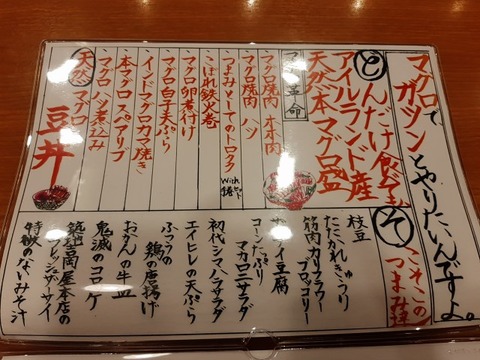 マグロで
ガツンとやりたいんですよ。
どんだけ食べても
アイルランド産
天然本マグロ盛
マグロ革命
・マグロ焼肉 ホホ肉
・マグロ焼肉 ハツ
・つまみとしてのトロタク
with
・こぼれ鉄火巻
・マグロ卵煮付け
・マグロ白子天ぷら
・インドマグロカマ焼き
・本マグロ スペアリブ
・マグロ ハツ煮込み
天然
マグロ
豆丼
そこそこの
つまみ達
枝豆
たたかれきゅうり
筋肉カリフラワー
ブロッコリー
ザーサイ豆腐
コーンたっぷり
マカロニサラダ
初代シメハラサラダ
エイヒレの天ぷら
ふつうの
鶏の唐揚げ
おかんの牛皿
鬼滅のコロッケ
築地吉岡屋本店の
フレッシュザーサイ
特徴のないみそ汁